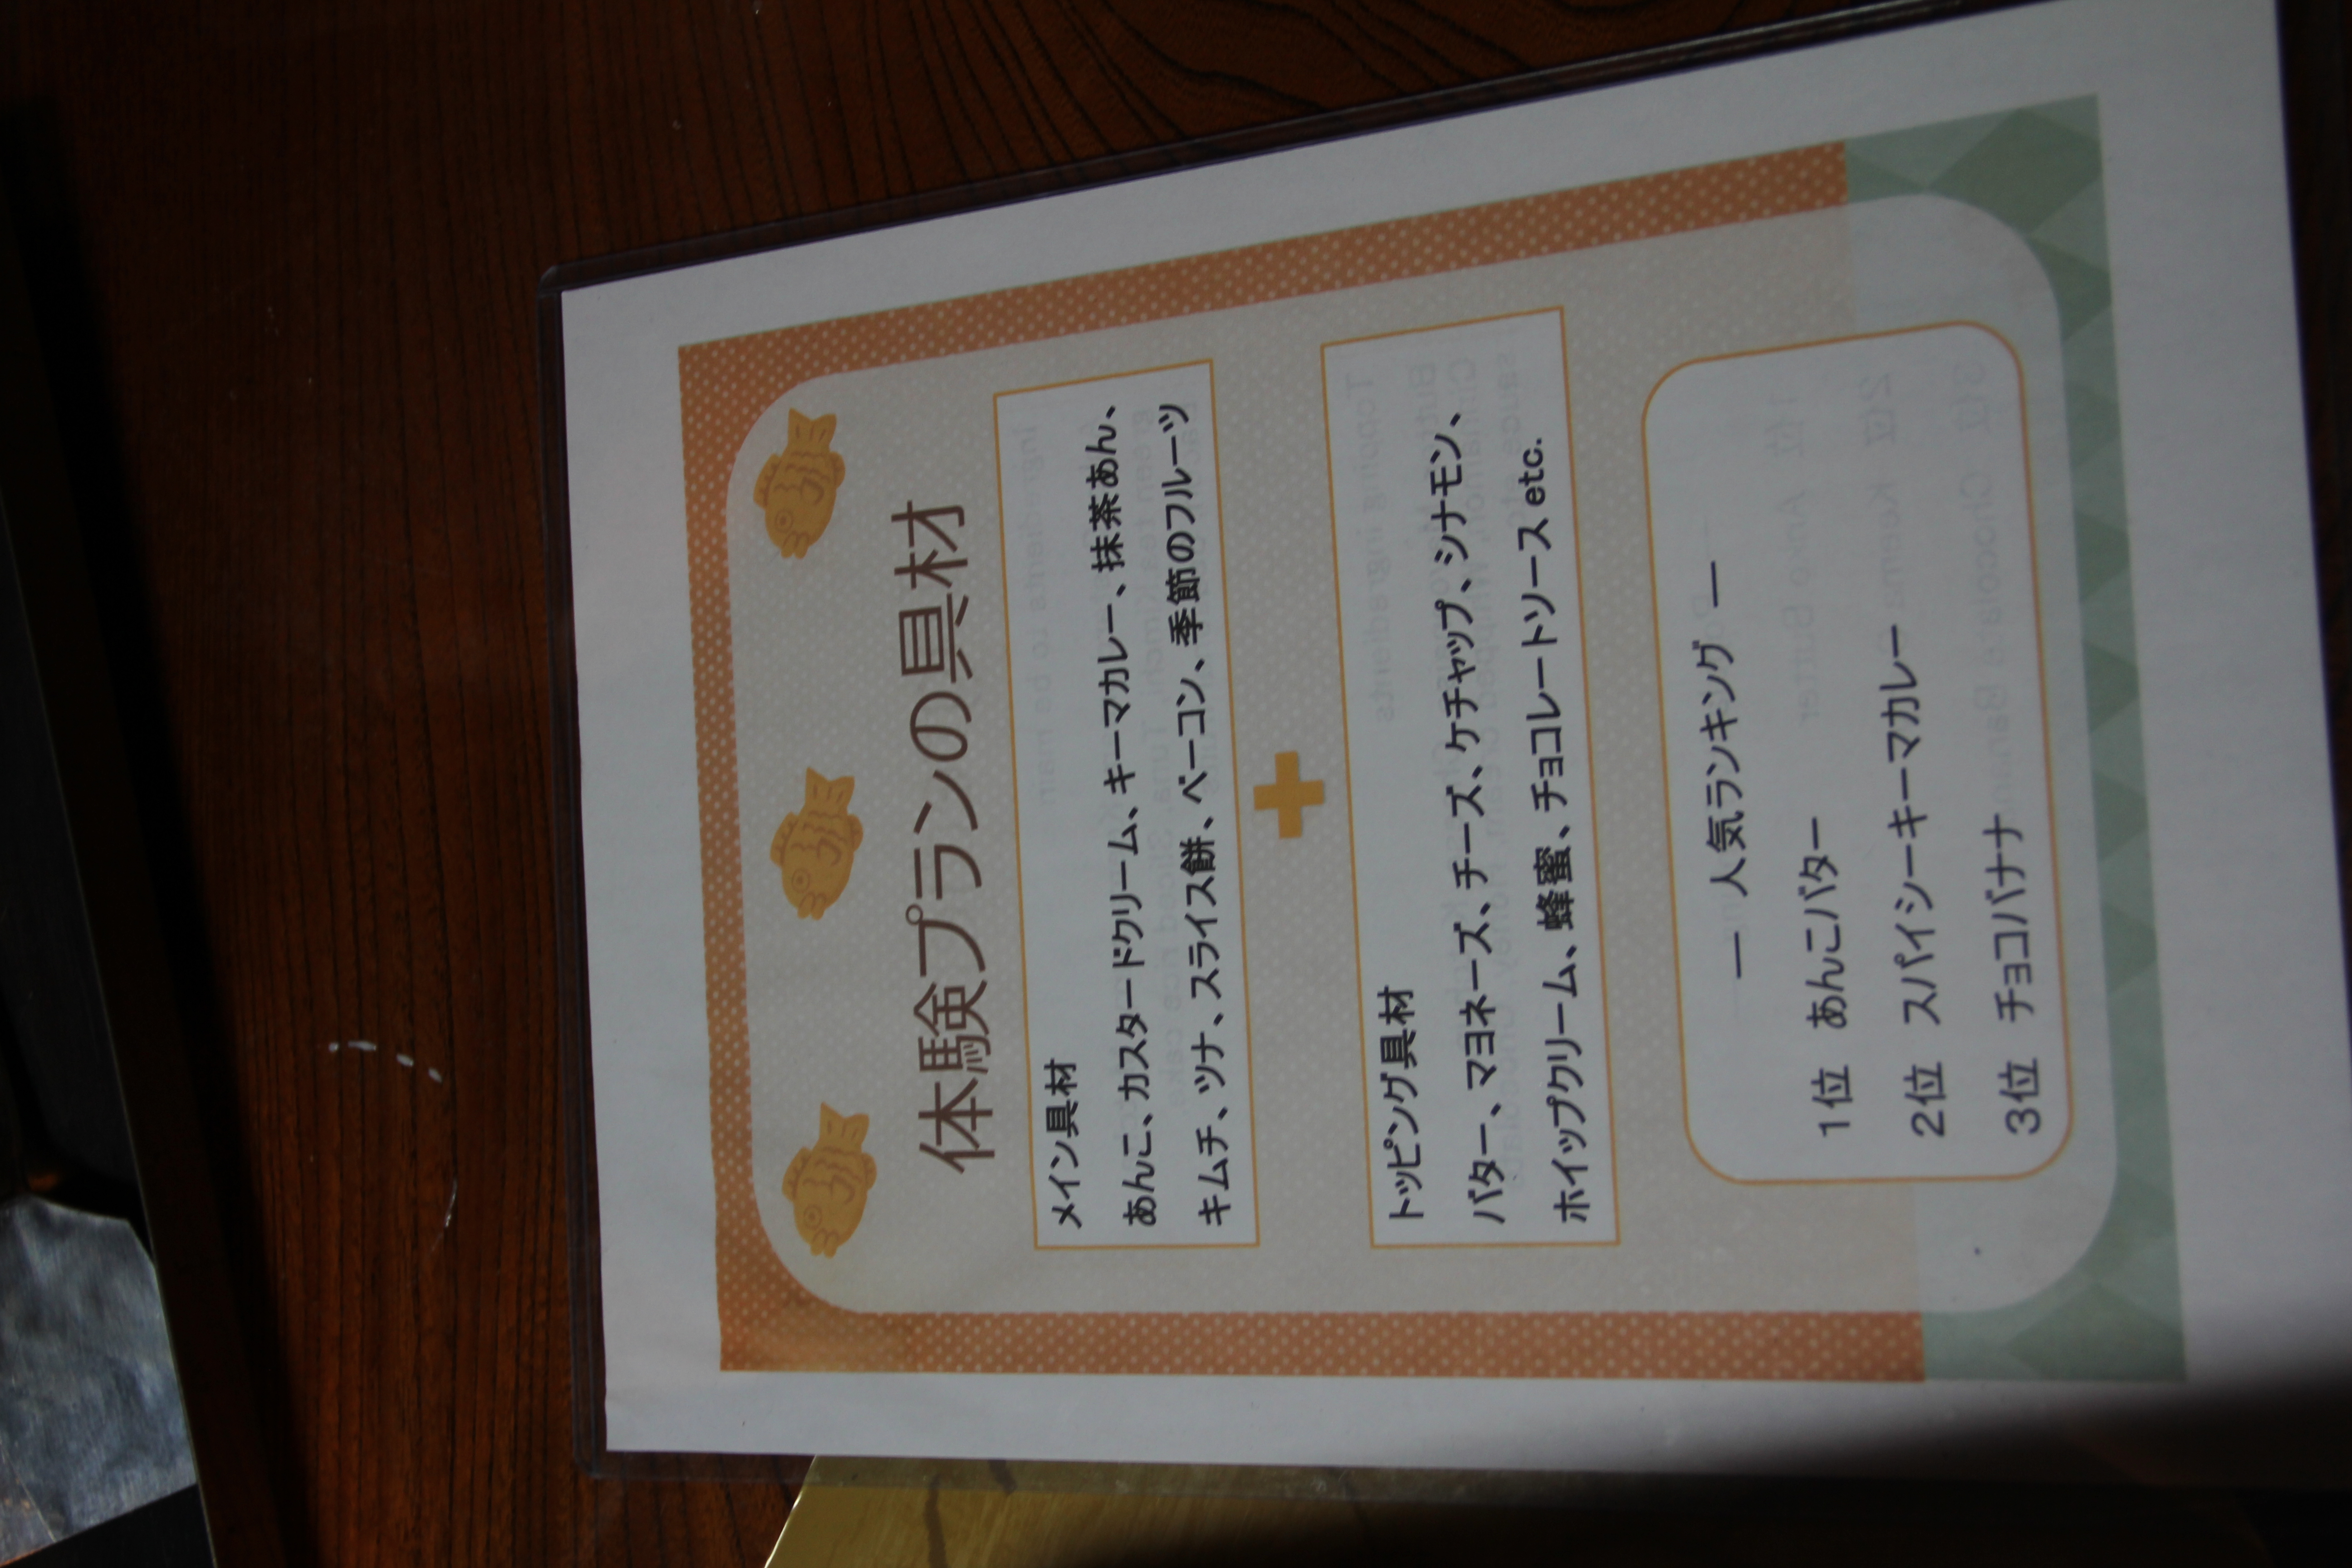 体験プランの具材
メイン具材
あんこ、カスタードクリーム、キーマカレー、抹茶あん、
キムチ、ツナ、スライス餅、ベーコン、季節のフルーツ
トッピング具材
バター、マヨネーズ、チーズ、ケチャップ、シナモン、
ホイップクリーム、蜂蜜、チョコレートソース etc.
― 人気ランキング ―
1位 あんこバター
2位 スパイシーキーマカレー
3位 チョコバナナ